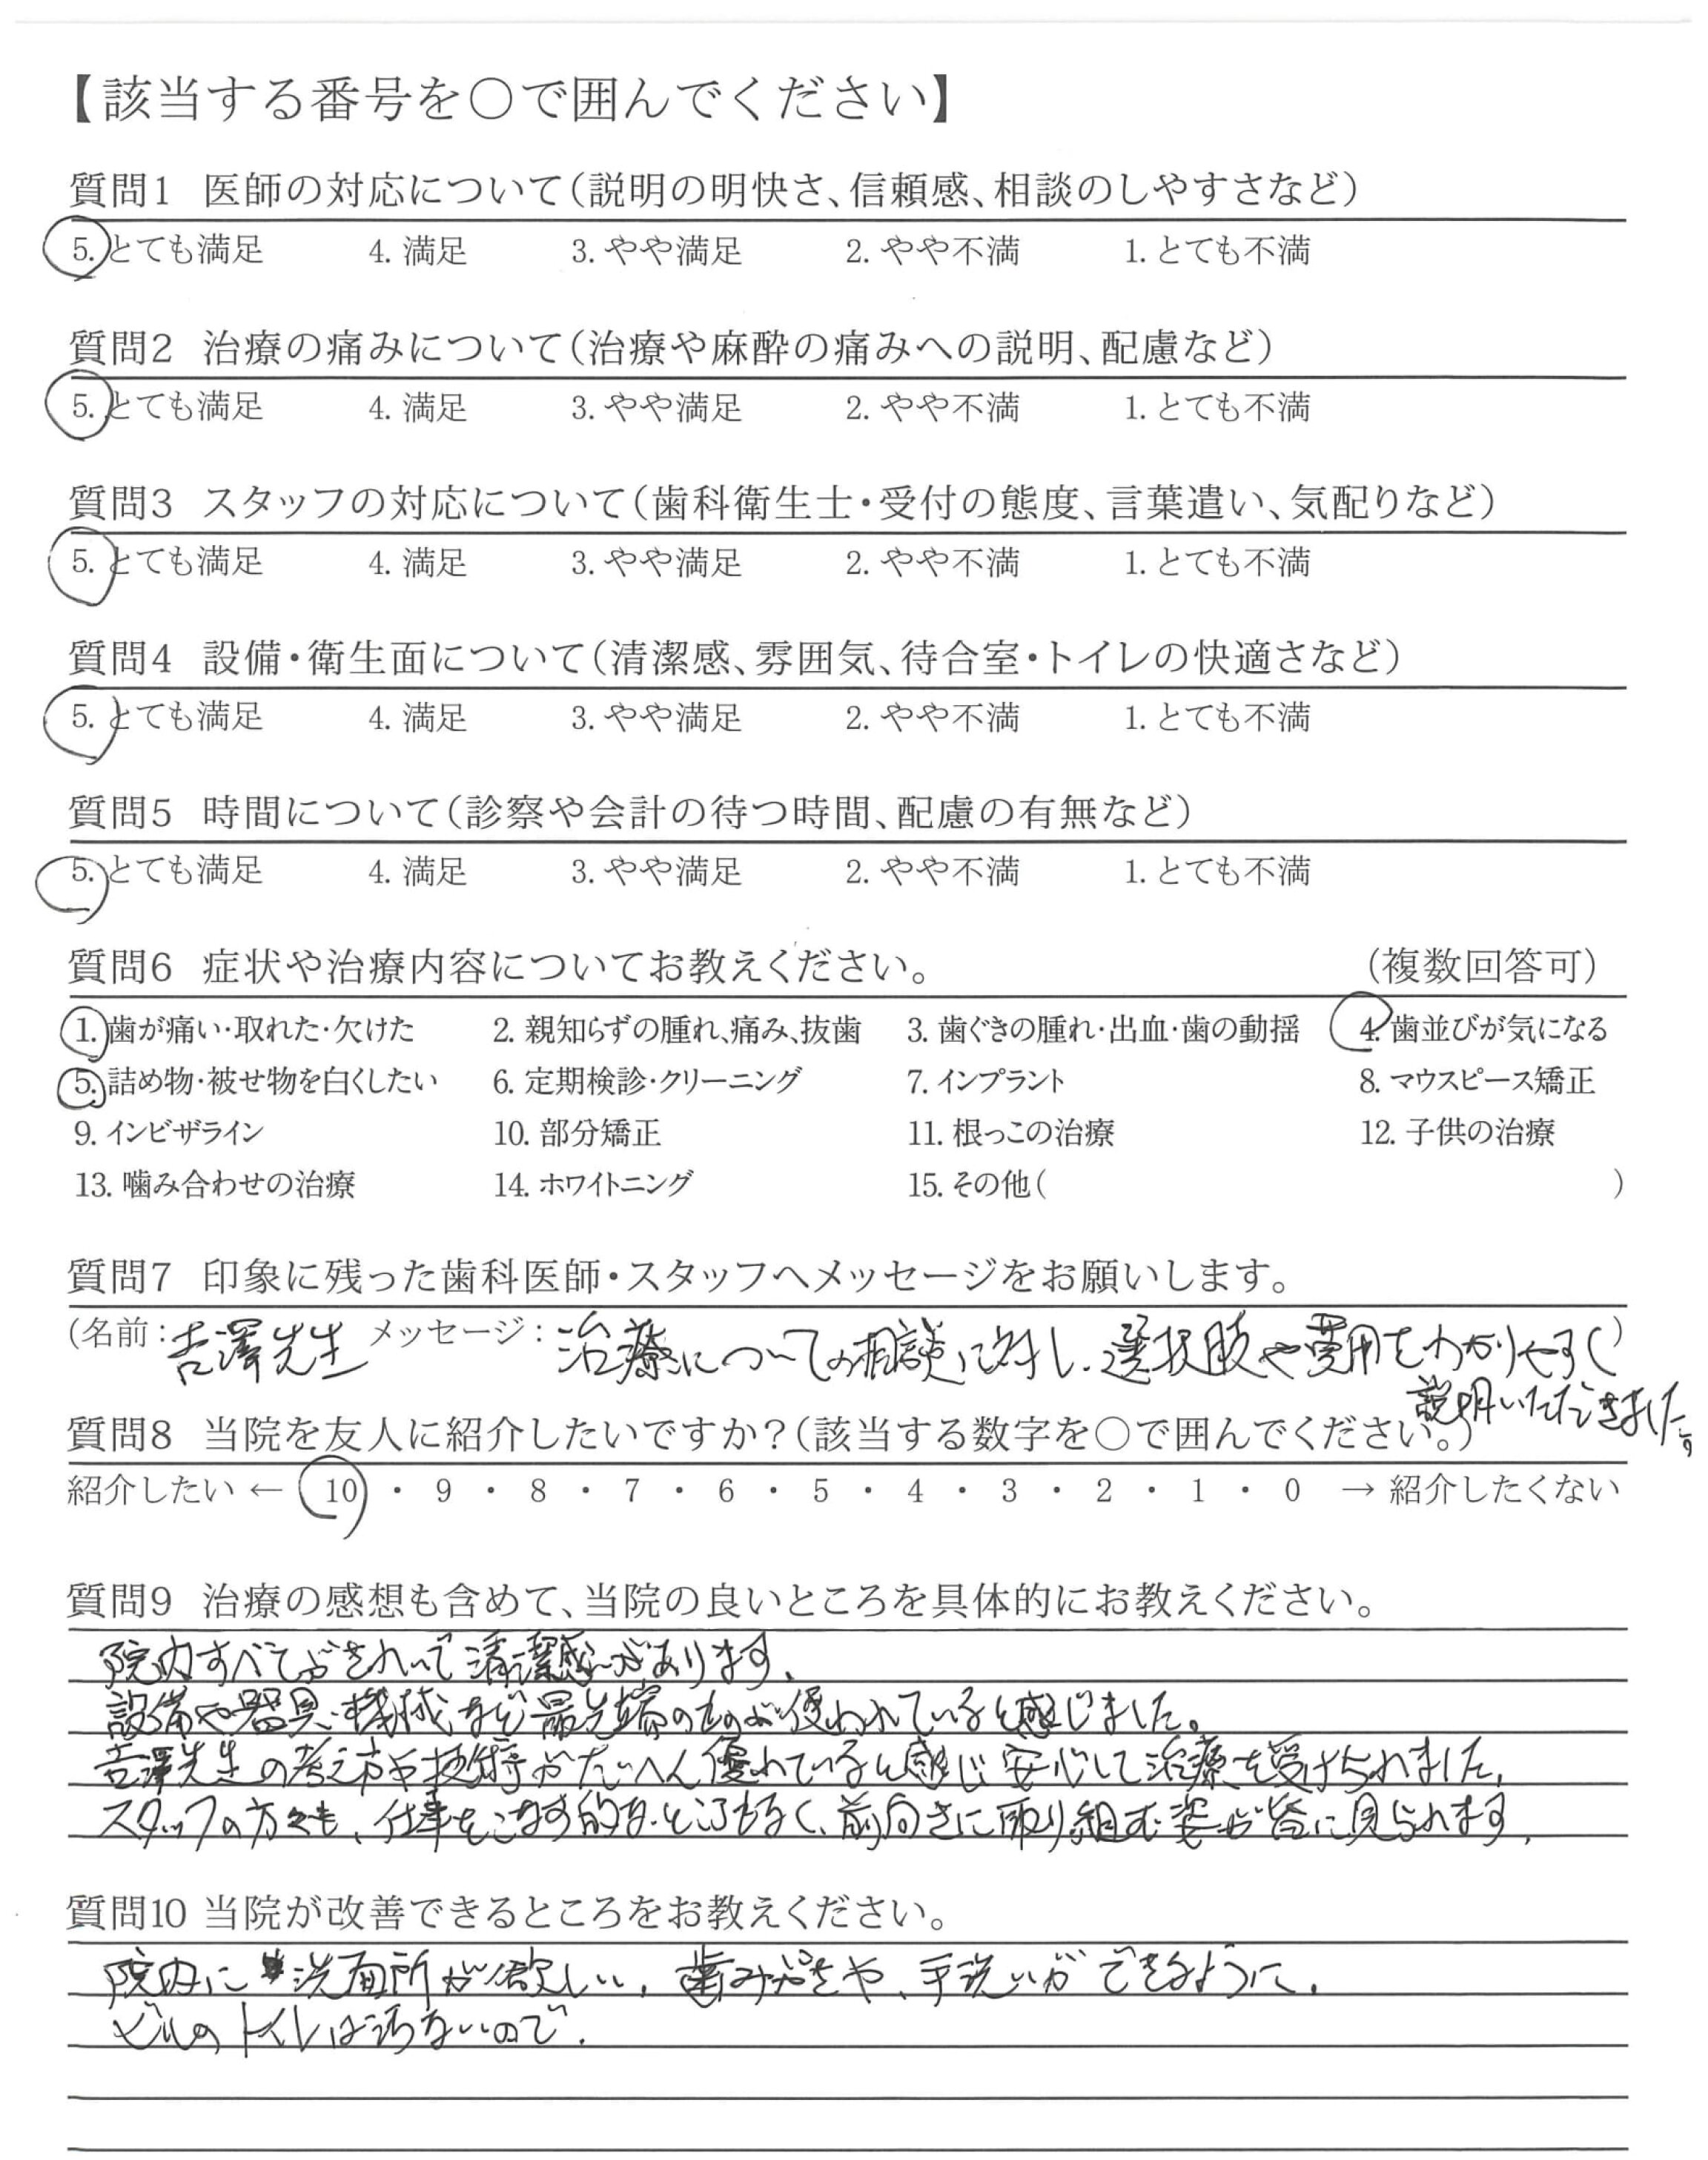 【該当する番号を○で囲んでください】
質問1 医師の対応について(説明の明快さ、信頼感、相談のしやすさなど)
5. とても満足 4. 満足 3. やや満足 2. やや不満 1. とても不満
質問2 治療の痛みについて(治療や麻酔の痛みへの説明、配慮など)
5. とても満足 4. 満足 3. やや満足 2. やや不満 1. とても不満
質問3 スタッフの対応について(歯科衛生士・受付の態度、言葉遣い、気配りなど)
5. とても満足 4. 満足 3. やや満足 2. やや不満 1. とても不満
質問4 設備・衛生面について(清潔感、雰囲気、待合室・トイレの快適さなど)
5. とても満足 4. 満足 3. やや満足 2. やや不満 1. とても不満
質問5 時間について(診察や会計の待つ時間、配慮の有無など)
5. とても満足 4. 満足 3. やや満足 2. やや不満 1. とても不満
質問6 症状や治療内容についてお教えください。 (複数回答可)
1. 歯が痛い・取れた・欠けた 2. 親知らずの腫れ、痛み、抜歯 3. 歯ぐきの腫れ・出血・歯の動揺 4. 歯並びが気になる
5. 詰め物・被せ物を白くしたい 6. 定期検診・クリーニング 7. インプラント 8. マウスピース矯正
9. インビザライン 10. 部分矯正 11. 根っこの治療 12. 子供の治療
13. 噛み合わせの治療 14. ホワイトニング 15. その他( )
質問7 印象に残った歯科医師・スタッフへメッセージをお願いします。
(名前:吉澤先生 メッセージ:治療についての相談に対し、選択肢や費用をわかりやすく)
説明いただきました。
質問8 当院を友人に紹介したいですか?(該当する数字を○で囲んでください。)
紹介したい ← 10 ・ 9 ・ 8 ・ 7 ・ 6 ・ 5 ・ 4 ・ 3 ・ 2 ・ 1 ・ 0 → 紹介したくない
質問9 治療の感想も含めて、当院の良いところを具体的にお教えください。
院内すべてがきれいで清潔感があります。
設備や器具・機械など最先端のものが使われていると感じました。
吉澤先生の考え方や技術がたいへん優れていると感じ安心して治療を受けられました。
スタッフの方々も、仕事をこなす的なところもなく、前向きに取り組む姿が皆に見られます。
質問10 当院が改善できるところをお教えください。
院内に洗面所が欲しい。歯みがきや、手洗いができるように。
ビルのトイレは汚ないので。